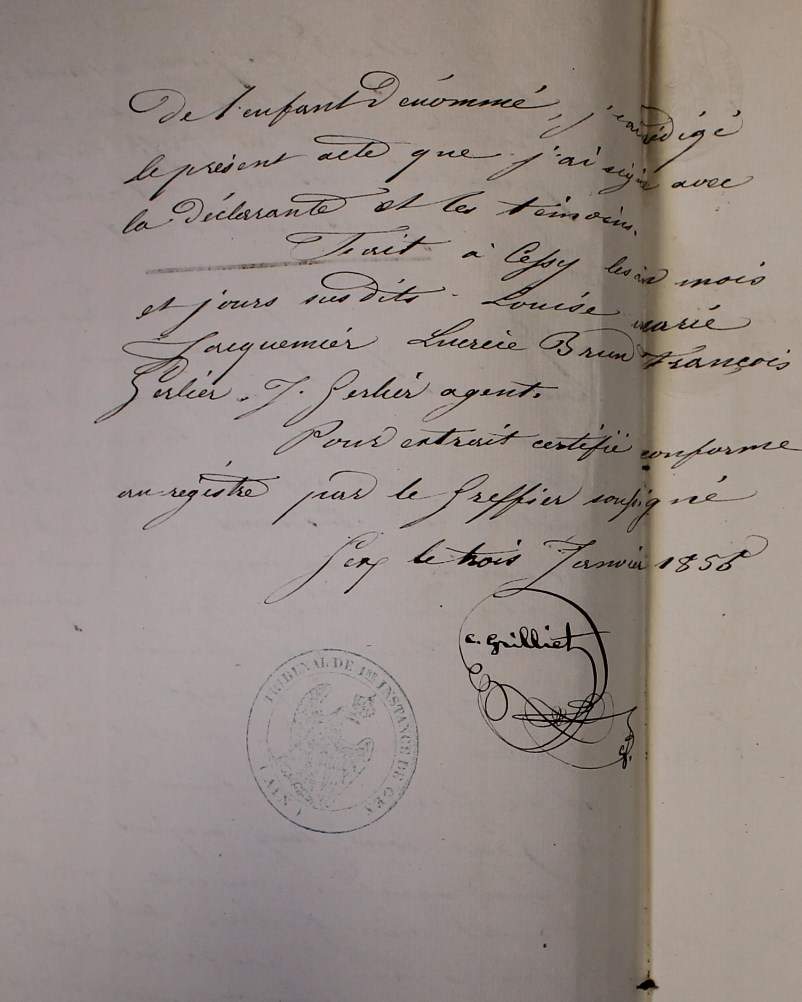 De l'enfant Dénommé, j'ai rédigé
le présent acte que j'ai signé avec
la Déclarante et les témoins.
Fait à Cessy les an mois
et jours susdits. Louise marie
Jacquemier Lucrèce Brun François
Gerlier. J. Gerlier agent.
Pour extrait certifié conforme
au régistre par le Greffier soussigné
Gex le trois Janvier 1856
C. Grilliet
TRIBUNAL DE 1RE INSTANCE DE GEX
(AIN)